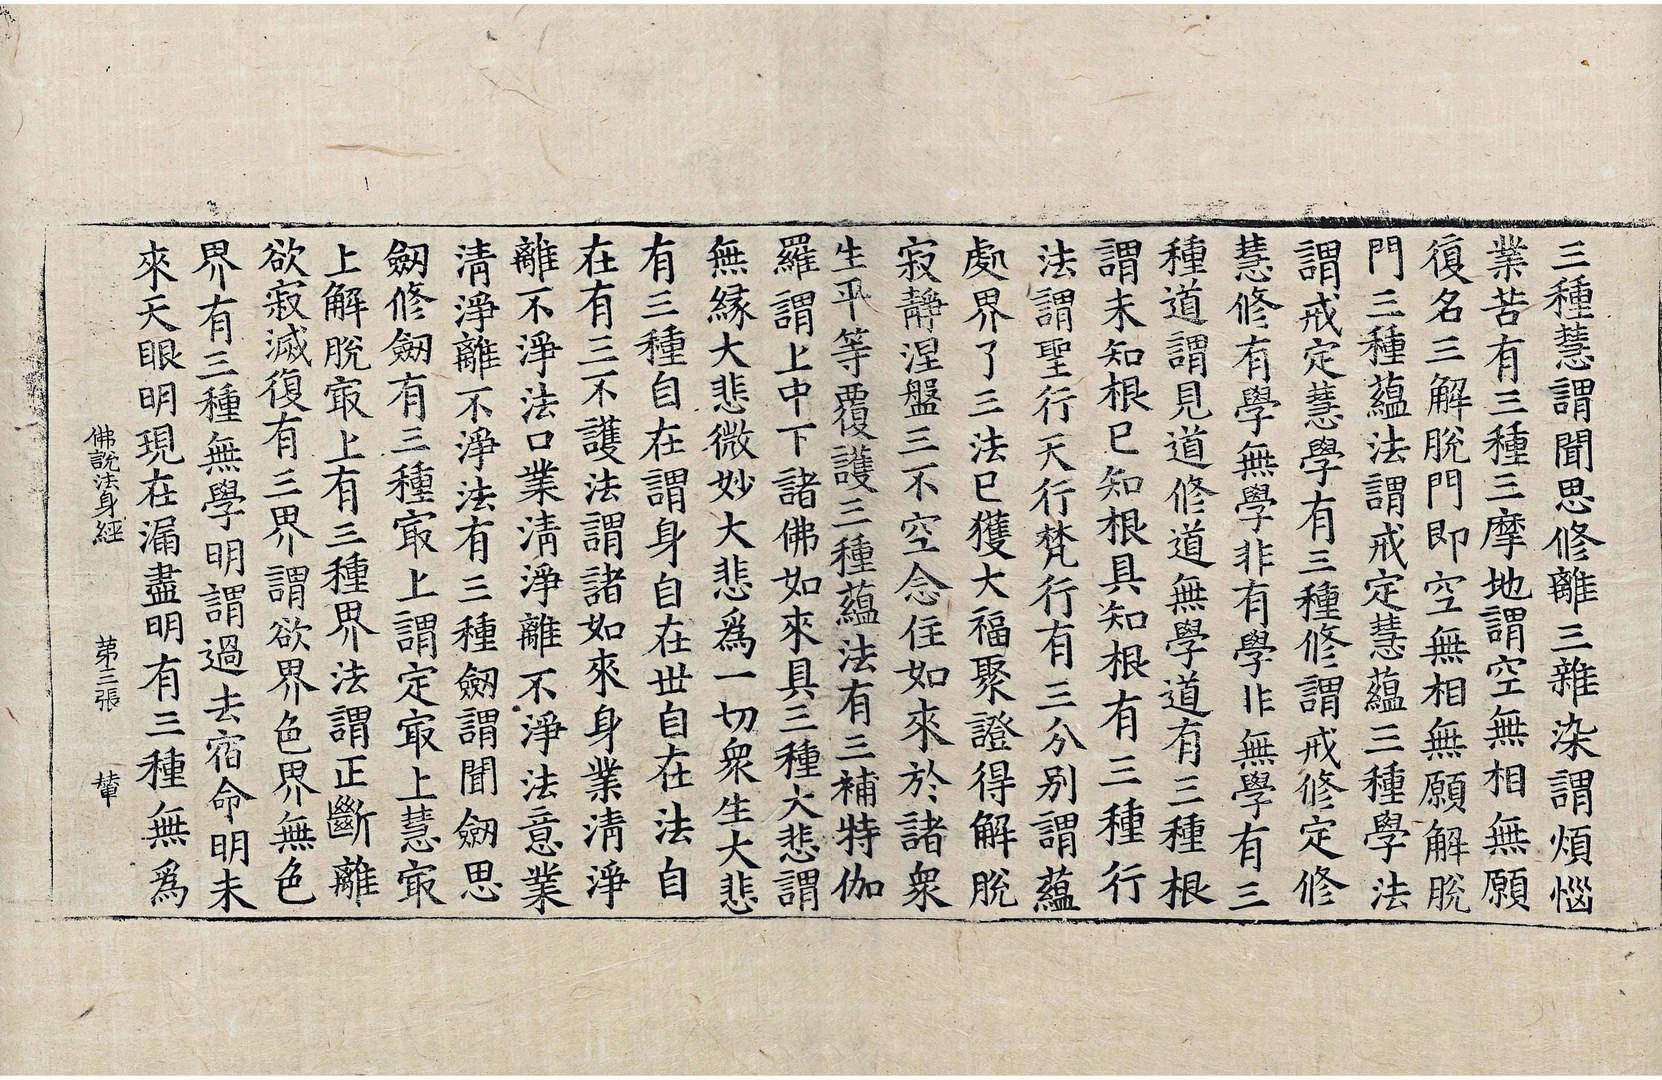 三種慧謂聞思修離三雜染謂煩惱
業苦有三種三摩地謂空無相無願
復名三解脫門即空無相無願解脫
門三種蘊法謂戒定慧蘊三種學法
謂戒定慧學有三種修謂戒修定修
慧修有學無學非有學非無學有三
種道謂見道修道無學道有三種根
謂未知根已知根具知根有三種行
法謂聖行天行梵行有三分別謂蘊
處界了三法已獲大福聚證得解脫
寂靜涅盤三不空念住如來於諸衆
生平等覆護三種蘊法有三補特伽
羅謂上中下諸佛如來具三種大悲謂
無緣大悲微妙大悲爲一切衆生大悲
有三種自在謂身自在世自在法自
在有三不護法謂諸如來身業清淨
離不淨法口業清淨離不淨法意業
清淨離不淨法有三種劒謂聞劒思
劒修劒有三種㝡上謂定㝡上慧㝡
上解脫㝡上有三種界法謂正斷離
欲寂滅復有三界謂欲界色界無色
界有三種無學明謂過去宿命明未
來天眼明現在漏盡明有三種無爲
佛說法身經　第三張　輦